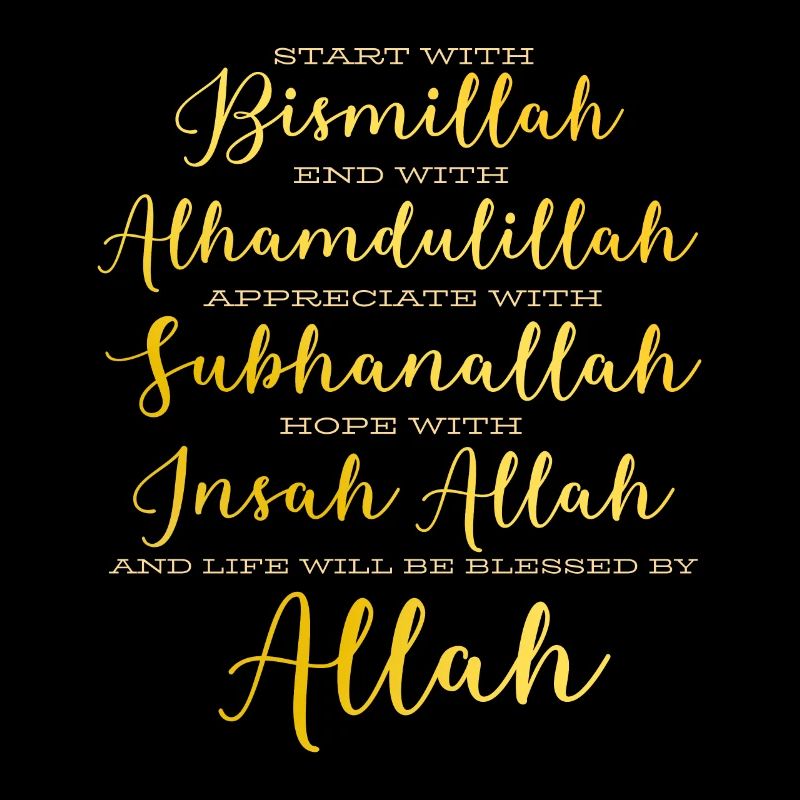 START WITH
Bismillah
END WITH
Alhamdulillah
APPRECIATE WITH
Subhanallah
HOPE WITH
Insah Allah
AND LIFE WILL BE BLESSED BY
Allah